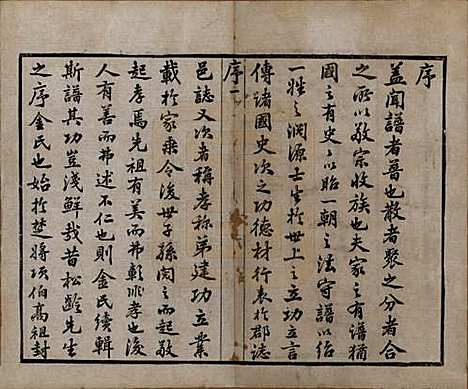 序
蓋聞譜者普也散者聚之分者合
之所以敬宗收族也夫家之有譜猶
國之有史史以昭一朝之法守譜以紹
一姓之淵源士生於世上之立功立言
傳諸國史次之功德材行表於郡誌
序一
邑誌又次者稱孝稱弟建功立業
載於家乘令後世子孫閱之而起敬
起孝焉先祖有美而弗彰非孝也後
人有善而弗述不仁也則金氏續輯
斯譜其功豈淺鮮哉昔松齡先生
之序金氏也始於楚將項伯高祖封